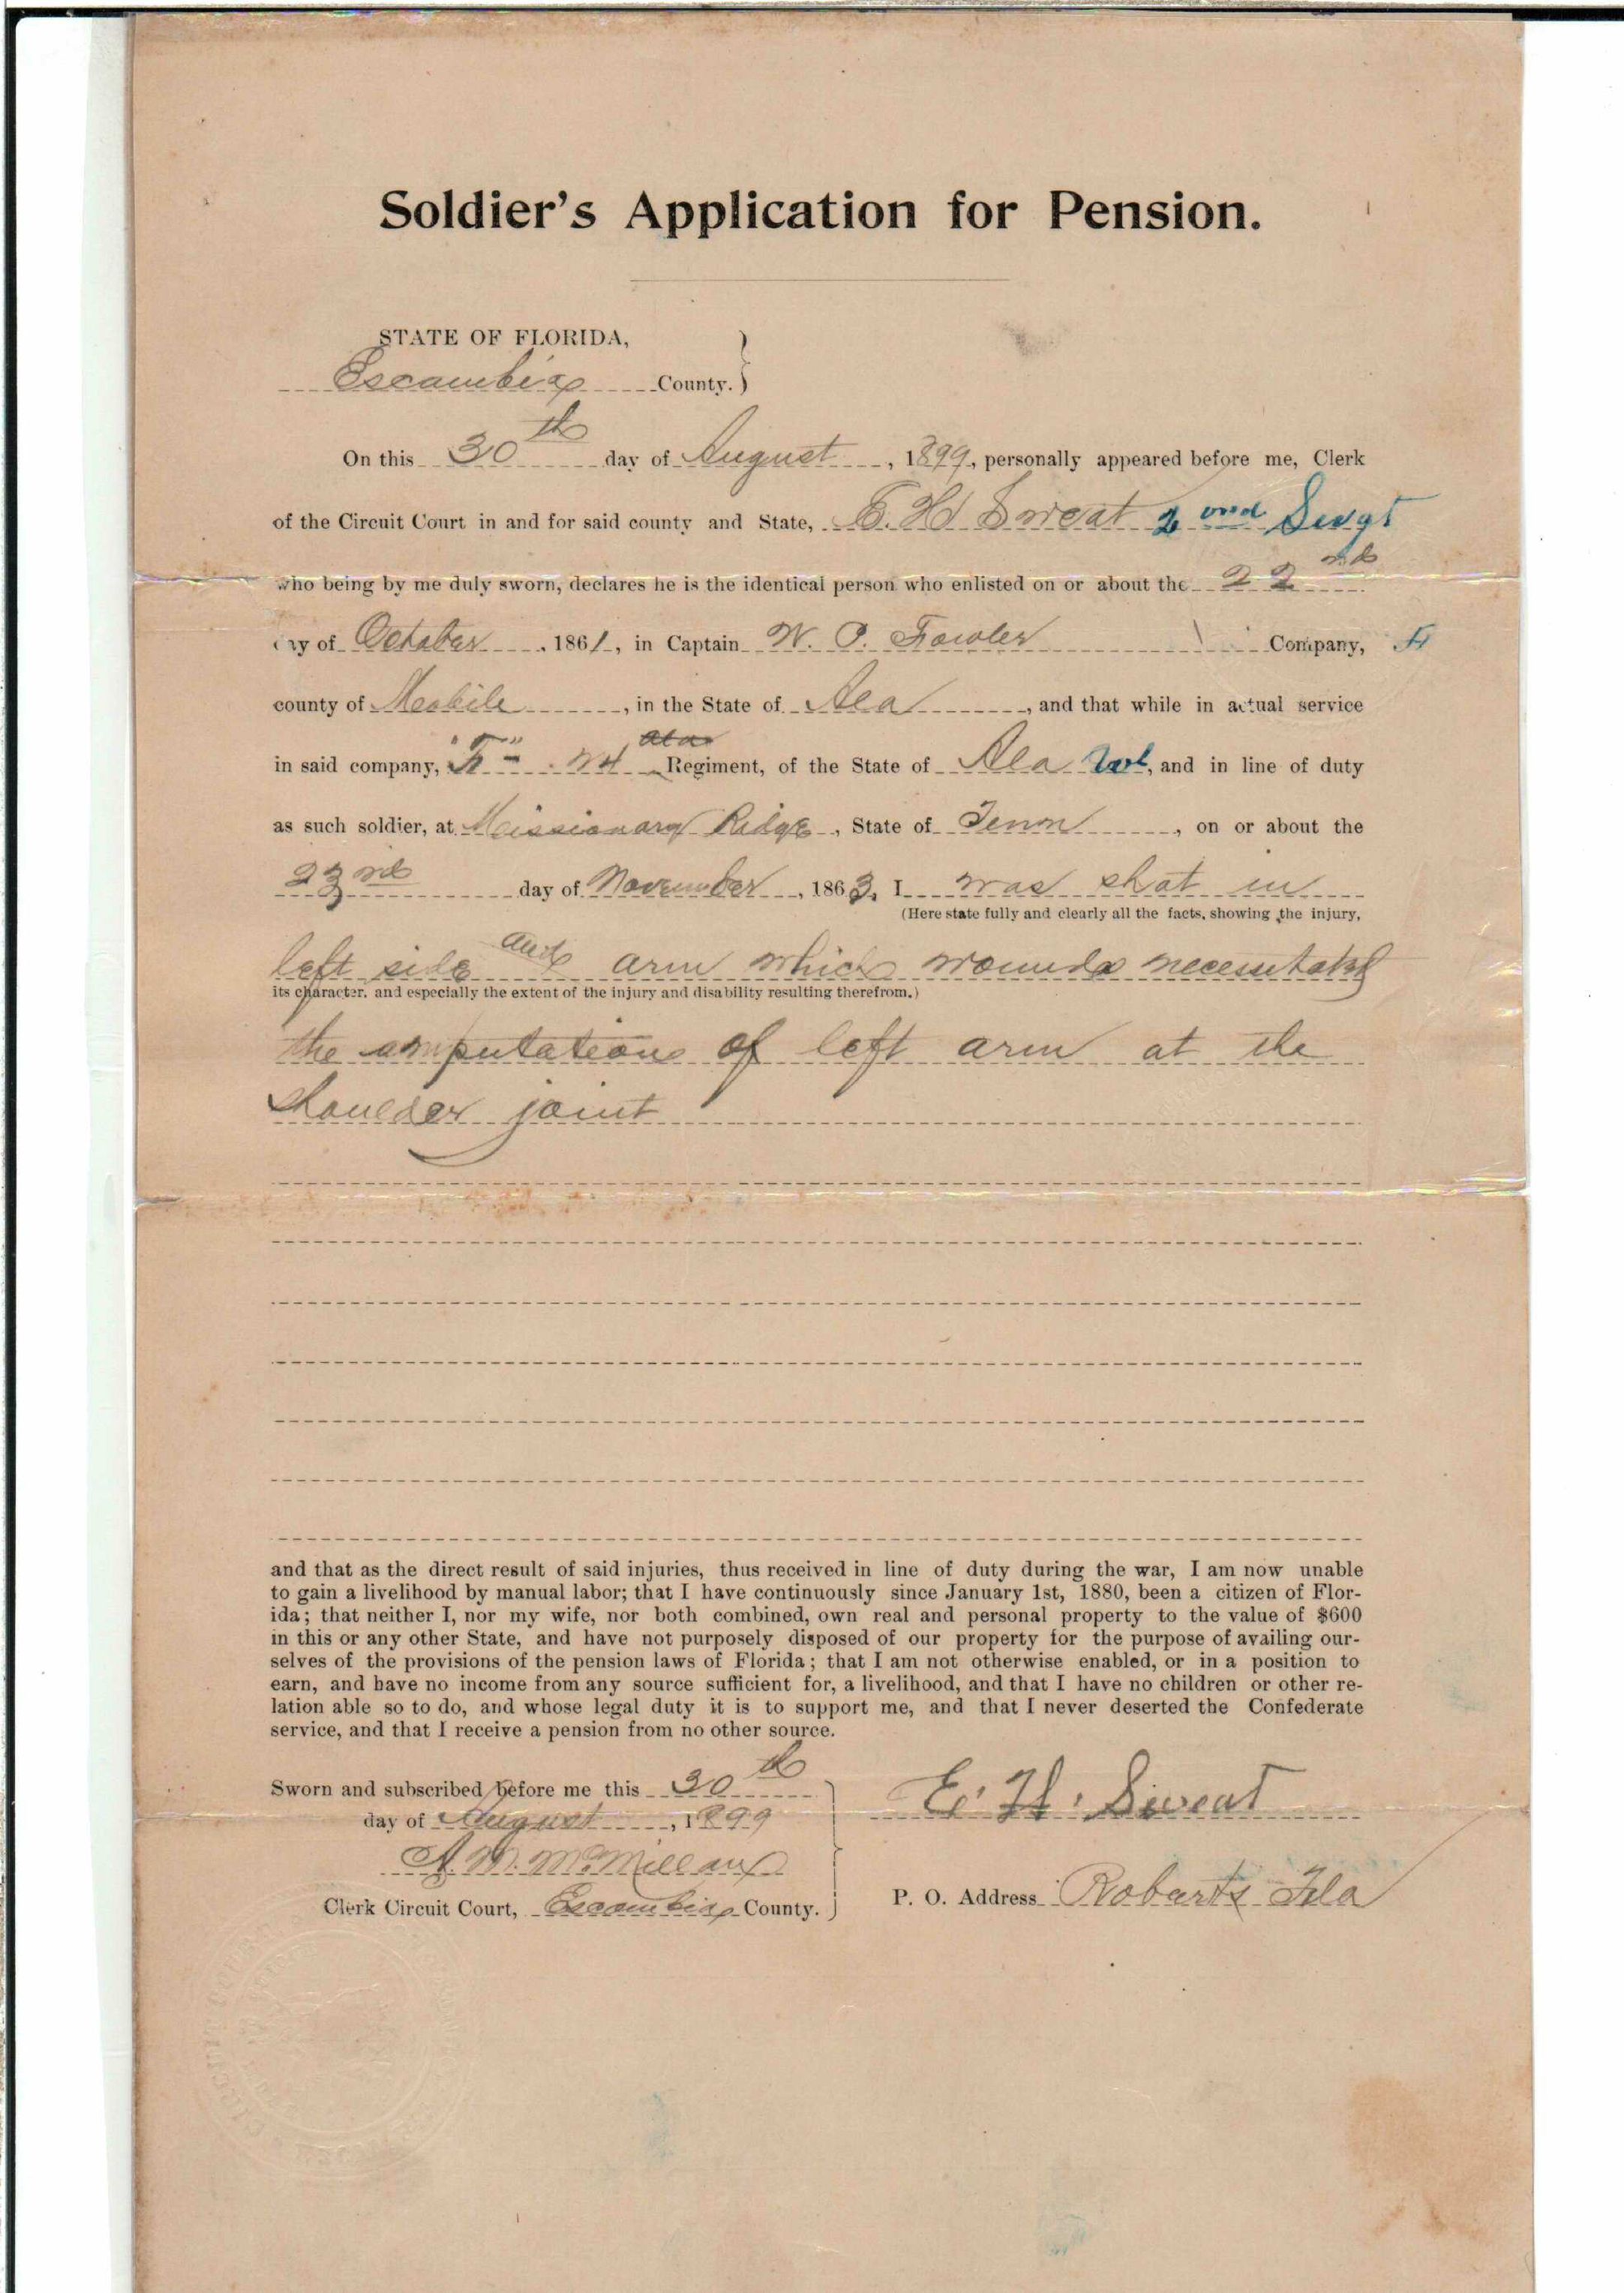 Soldier's Application for Pension.
STATE OF FLORIDA,
Escambia County.
On this 30th day of August, 1899, personally appeared before me, Clerk
of the Circuit Court in and for said county and State, E. H Sweat 2ond Sergt
who being by me duly sworn, declares he is the identical person who enlisted on or about the 22nd
day of October, 1861, in Captain W. P. Fowler Company,
county of Mobile, in the State of Ala, and that while in actual service
in said company, 24 Regiment, of the State of Ala Vol, and in line of duty
as such soldier, at Missionary Ridge, State of Tenn, on or about the
23rd day of November, 1863, I was shot in
(Here state fully and clearly all the facts, showing the injury,
left side and arm which wounds necessitated
its character, and especially the extent of the injury and disability resulting therefrom.)
the amputation of left arm at the
shoulder joint
and that as the direct result of said injuries, thus received in line of duty during the war, I am now unable
to gain a livelihood by manual labor; that I have continuously since January 1st, 1880, been a citizen of Flor-
ida; that neither I, nor my wife, nor both combined, own real and personal property to the value of $600
in this or any other State, and have not purposely disposed of our property for the purpose of availing our-
selves of the provisions of the pension laws of Florida; that I am not otherwise enabled, or in a position to
earn, and have no income from any source sufficient for, a livelihood, and that I have no children or other re-
lation able so to do, and whose legal duty it is to support me, and that I never deserted the Confederate
service, and that I receive a pension from no other source.
Sworn and subscribed before me this 30th
day of August, 1899
E. H. Sweat
A. M. McMillan
Clerk Circuit Court, Escambia County.
P. O. Address Roberts Fla